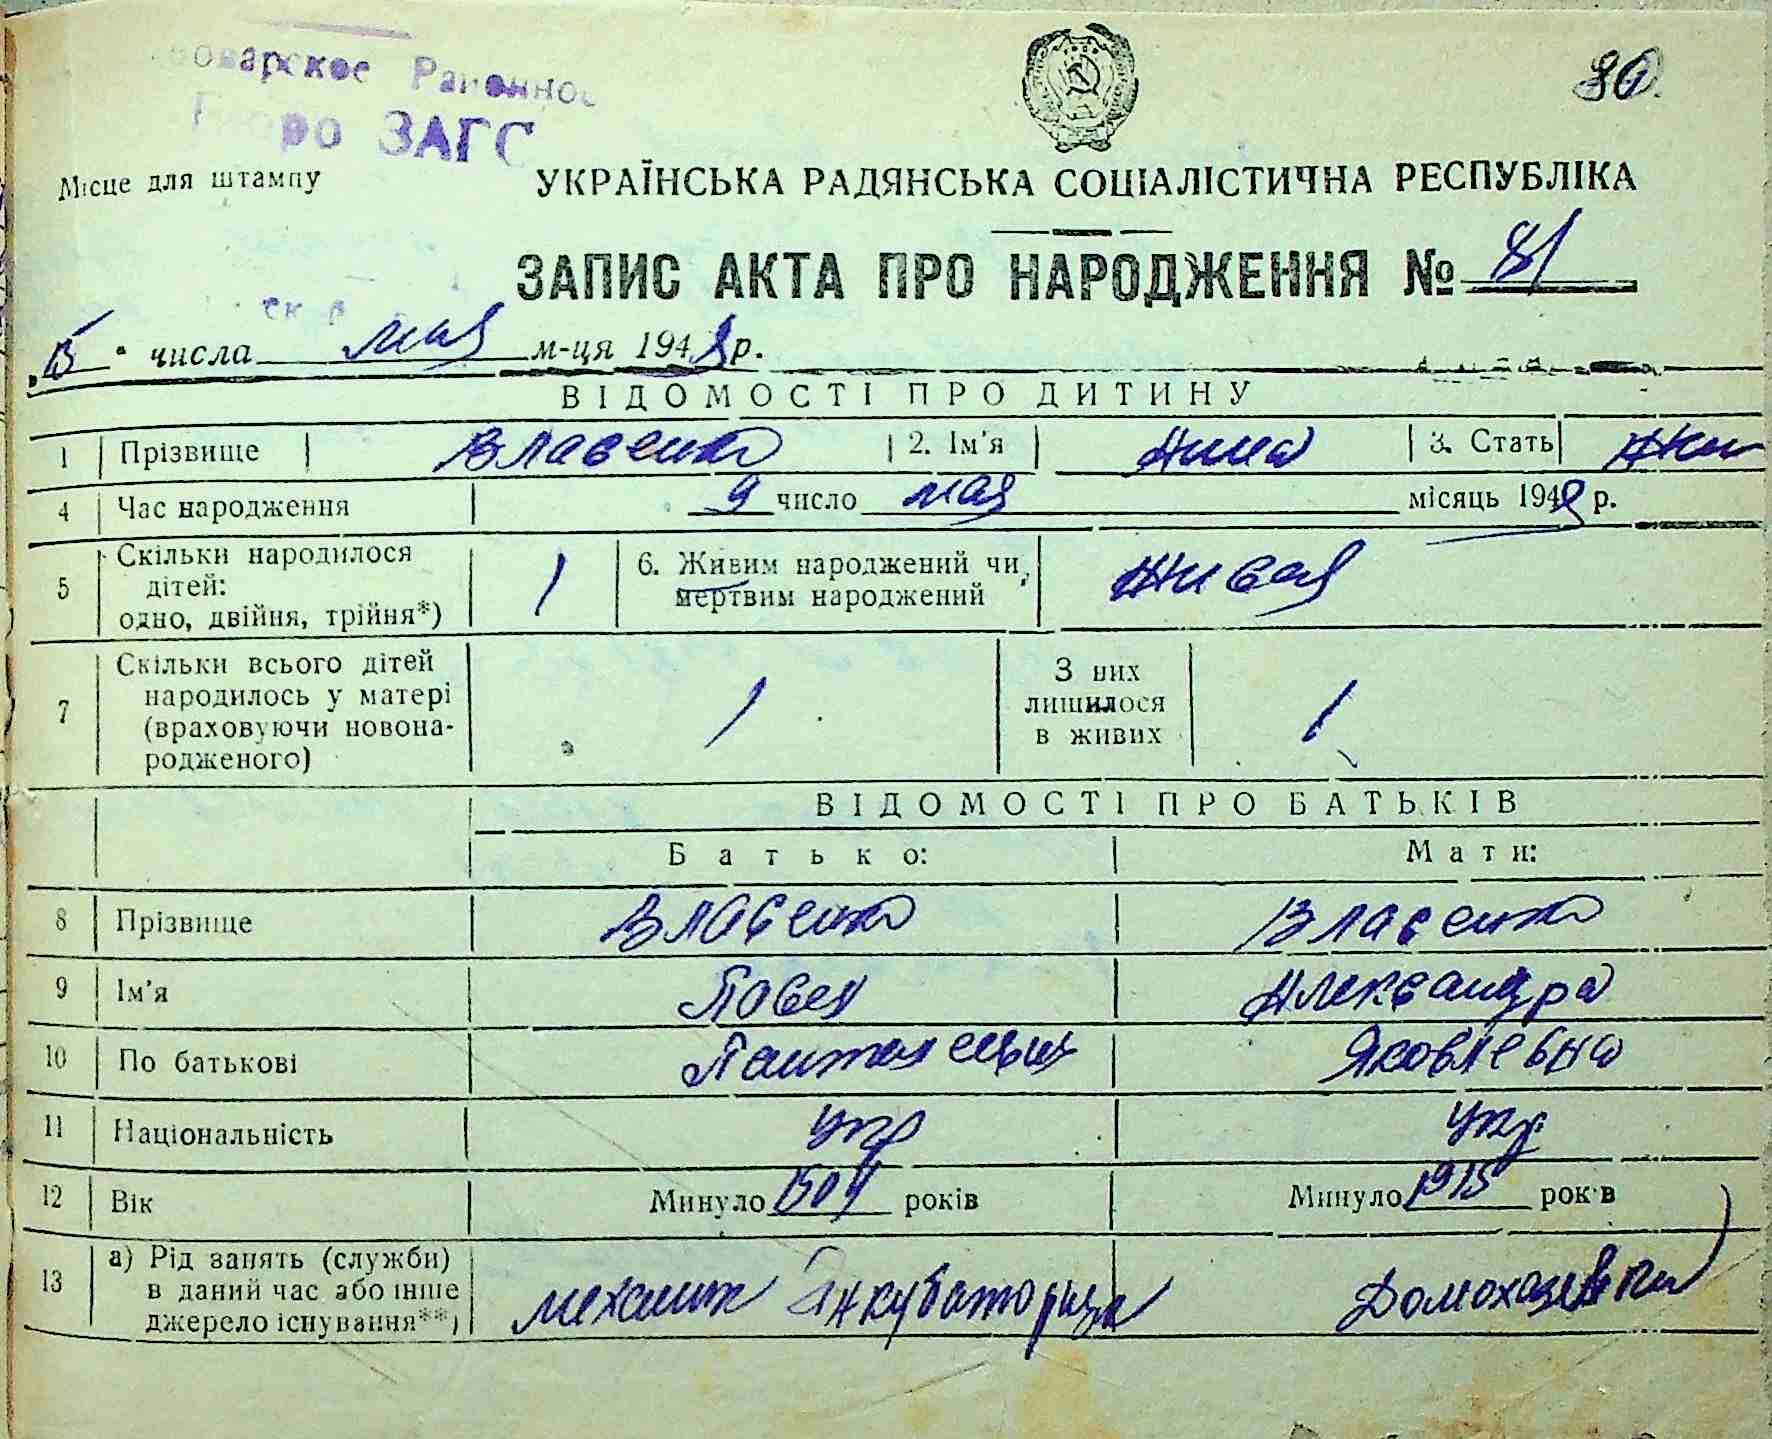 Районное
Бюро ЗАГС
80
Місце для штампу
УКРАЇНСЬКА РАДЯНСЬКА СОЦІАЛІСТИЧНА РЕСПУБЛІКА
ЗАПИС АКТА ПРО НАРОДЖЕННЯ № 81
15 числа мая м-ця 1948 р.
ВІДОМОСТІ ПРО ДИТИНУ
1 Прізвище Власенко 2. Ім'я Нина 3. Стать жен
4 Час народження 9 число мая місяць 1948 р.
5 Скільки народилося дітей: одно, двійня, трійня*) 1 6. Живим народжений чи мертвим народжений живая
7 Скільки всього дітей народилось у матері (враховуючи новонародженого) 1 З них лишилося в живих 1
ВІДОМОСТІ ПРО БАТЬКІВ
Батько: Мати:
8 Прізвище Власенко Власенко
9 Ім'я Павел Александра
10 По батькові Яковлевна
11 Національність укр укр
12 Вік Минуло 1904 років Минуло 1915 років
13 а) Рід занять (служби) в даний час або інше джерело існування**) механик Домохозяйка